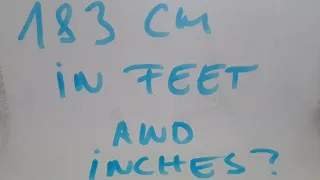 183 cm
in FEET
AND
inCHES?